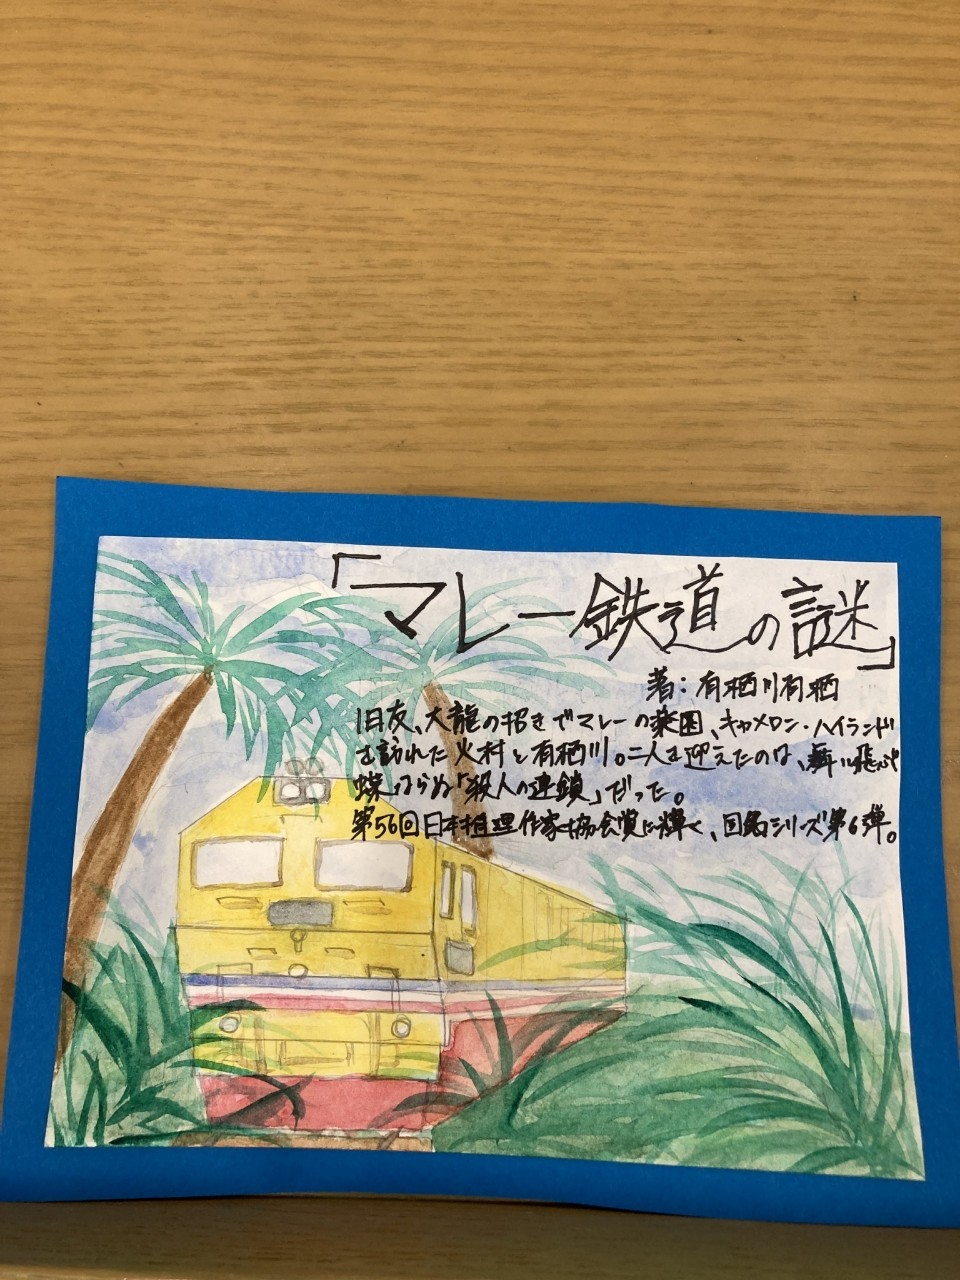 「マレー鉄道の謎」
著：有栖川有栖
旧友、大龍の招きでマレーの楽園、キャメロン・ハイランド
を訪れた火村と有栖川。二人を迎えたのは、舞い飛ぶ
蝶ならぬ「殺人の連鎖」だった。
第56回日本推理作家協会賞に輝く、国名シリーズ第6弾。